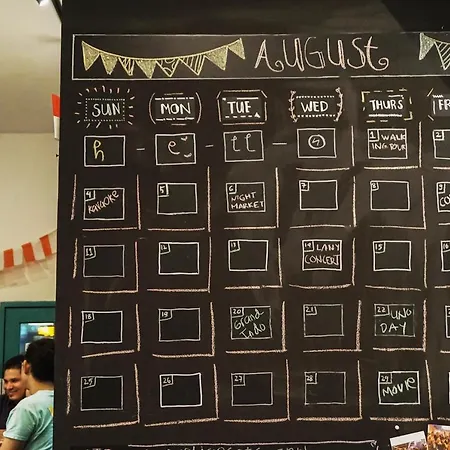 AUGUST
SUN MON TUE WED THURS FR
1 WALK
ING TOUR
2
4 KARAOKE
5
6 NIGHT
MARKET
7
8
9
11
12
13
14 LANY
CONCERT
15
16
18
19
20
Grand
Indo
21
22 UNO
DAY
25
26
27
28
29
MOVIE